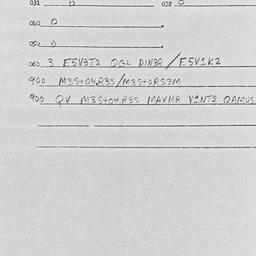 031 0 032 0
040 0
050 0
060 3 F5V3T2 QGL DIN3R / F5V1K2
900 M35+04.R35/M35+0R53M
900 QV M35+04.R35 MAVMR V1NT2 OAMUS